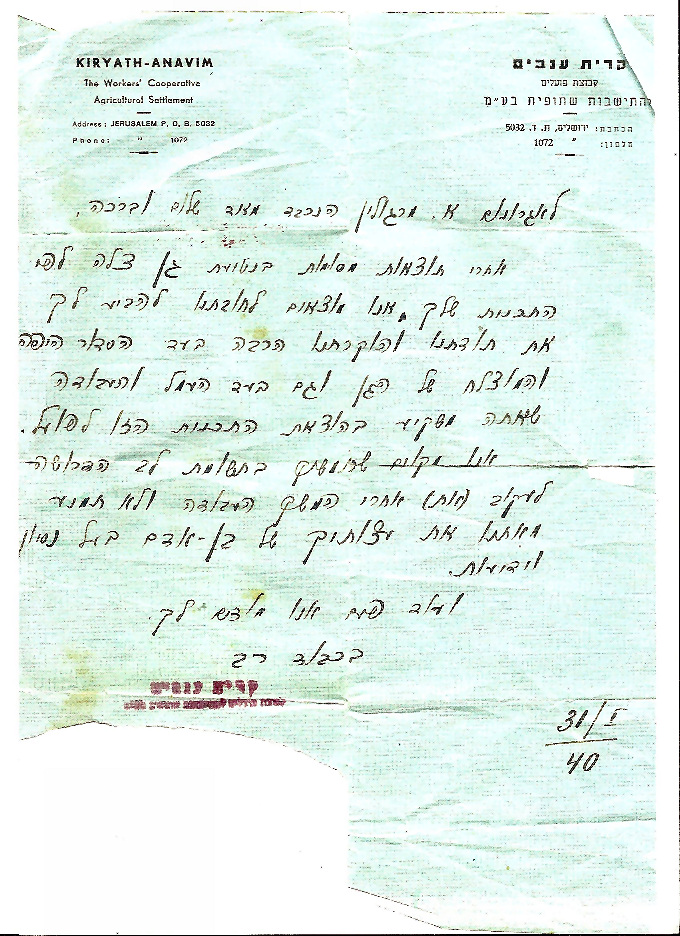 KIRYATH-ANAVIM
The Workers' Cooperative
Agricultural Settlement
Address: JERUSALEM P. O. B. 5032
Phone: " 1072
קרית ענבים
קבוצת פועלים
להתישבות שתופית בע"מ
הכתבת: ירושלים, ת. ד. 5032
תלפון: " 1072
לאגרונום א. מרגולין הנכבד מאוד שלום וברכה,
אחרי תוצאות מסוימות בנטיעת גן צלה לפי
התכנות שלך, אנו מוצאים לחובתנו להביע לך
את תודתנו והוקרתנו הרבה בעד הסדור היפה
והמוצלח של הגן וגם בעד העמל והעבודה
שאתה משקיע בהוצאת התכנות הזו לפועל.
אנו מקוים שתמשיך בתשומת לב הדרושה
לעקוב אחרי המשך העבודה ולא תמנע
מאתנו את עצותיך של בן-אדם בעל נסיון
וידיעות.
ועוד פעם אנו מודים לך.
בכבוד רב
קרית ענבים
31/I
40